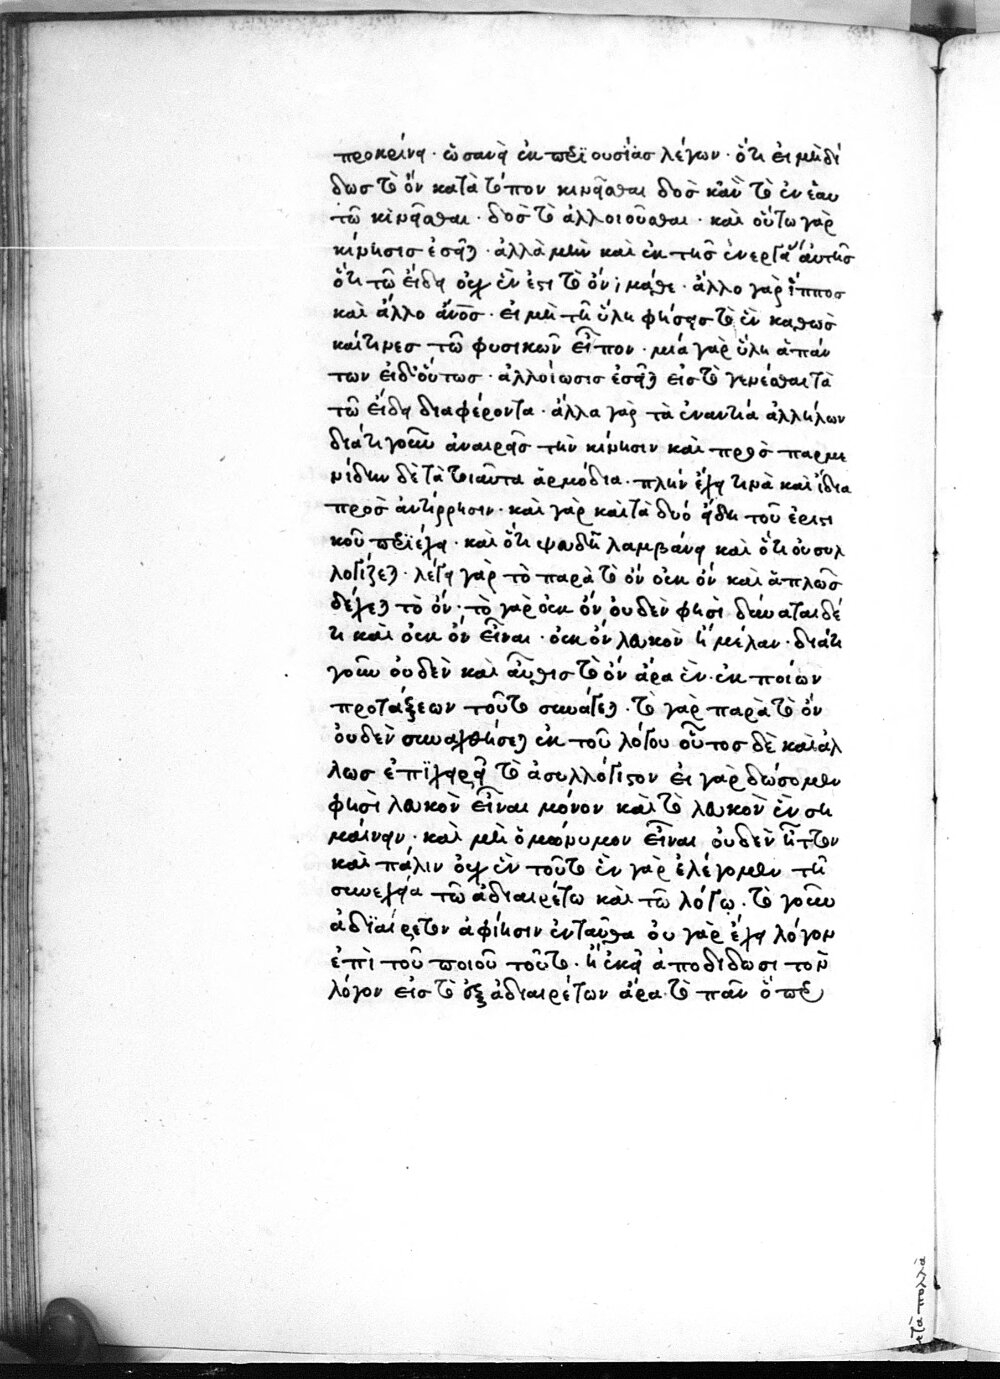 προκρίνει · ὡσανεὶ ἐκ περιουσίας λέγων · ὅτι εἰ μὴ δί
δως τὸ ὂν κατὰ τόπον κινεῖσθαι δὸς κἂν τὸ ἐν ἑαυ
τῶ κινεῖσθαι · δὸς τὸ ἀλλοιοῦσθαι · καὶ οὕτω γὰρ
κίνησις ἐσεῖται · ἀλλὰ μὴν καὶ ἐκ τῆς ἐνεργείας αὐτῆς
ὅτι τῶ εἴδει οὐχ ἕν ἐστι τὸ ὂν μάθε · ἄλλο γὰρ ἵππος
καὶ ἄλλο ἄνος · εἰ μὴ τῆ ὕλη φήσεις τὸ ἓν καθὼς
καί τινες τῶν φυσικῶν εἶπον · μία γὰρ ὕλη ἁπάν
των εἰ δ' οὕτως · ἀλλοίωσις ἐσεῖται εἰς τὸ γενέσθαι τὰ
τῶ εἴδει διαφέροντα · ἀλλὰ γὰρ τὰ ἐναντία ἀλλήλων
διατί γοῦν ἀναιρεῖς τὴν κίνησιν καὶ πρὸς παρμε
νίδην δὲ τὰ τοιαῦτα ἁρμόδια · πλὴν ἔχει τινὰ καὶ ἴδια
πρὸς ἀντίρρησιν · καὶ γὰρ καὶ τὰ δυὸ εἴδη τοῦ ἐριστι
κοῦ περιέχει · καὶ ὅτι ψευδῆ λαμβάνει καὶ ὅτι οὐ συλ
λογίζεται · λέγει γὰρ τὸ παρὰ τὸ ὂν οὐκ ὂν καὶ ἁπλῶς
δέχεται τὸ ὄν · τὸ γὰρ οὐκ ὂν οὐδὲν φησὶ δύναται δέ
τι καὶ οὐκ ὂν εἶναι · οὐκ ὂν λευκὸν ἢ μέλαν · διατί
γοῦν οὐδὲν καὶ αὖθις τὸ ὂν ἄρα ἕν · ἐκ ποίων
προτάξεων τοῦτο συνάγεται · τὸ γὰρ παρὰ τὸ ὂν
οὐδὲν συναχθήσεται ἐκ τοῦ λόγου οὗτος δὲ καὶ ἀλ
λως ἐπιχειρεῖ τὸ ἀσυλλόγιστον εἰ γὰρ δώσομεν
φησὶ λευκὸν εἶναι μόνον καὶ τὸ λευκὸν ἓν ση
μαίνειν · καὶ μὴ ὁμώνυμον εἶναι οὐδὲν ἧττον
καὶ πάλιν οὐχ ἓν τοῦτο ἓν γὰρ ἐλέγομεν τῆ
συνεχεία τῶ ἀδιαιρέτω καὶ τῶ λόγω · τὸ γοῦν
ἀδιαίρετον ἀφίησιν ἐνταῦθα οὐ γὰρ ἔχει λόγον
ἐπὶ τοῦ ποιοῦ τοῦτο · ἢ ἐκεῖ ἀποδίδωσι τὸν
λόγον εἰς τὸ ἐξ ἀδιαιρέτων ἄρα τὸ πᾶν ὅπερ
τὰ πολλὰ